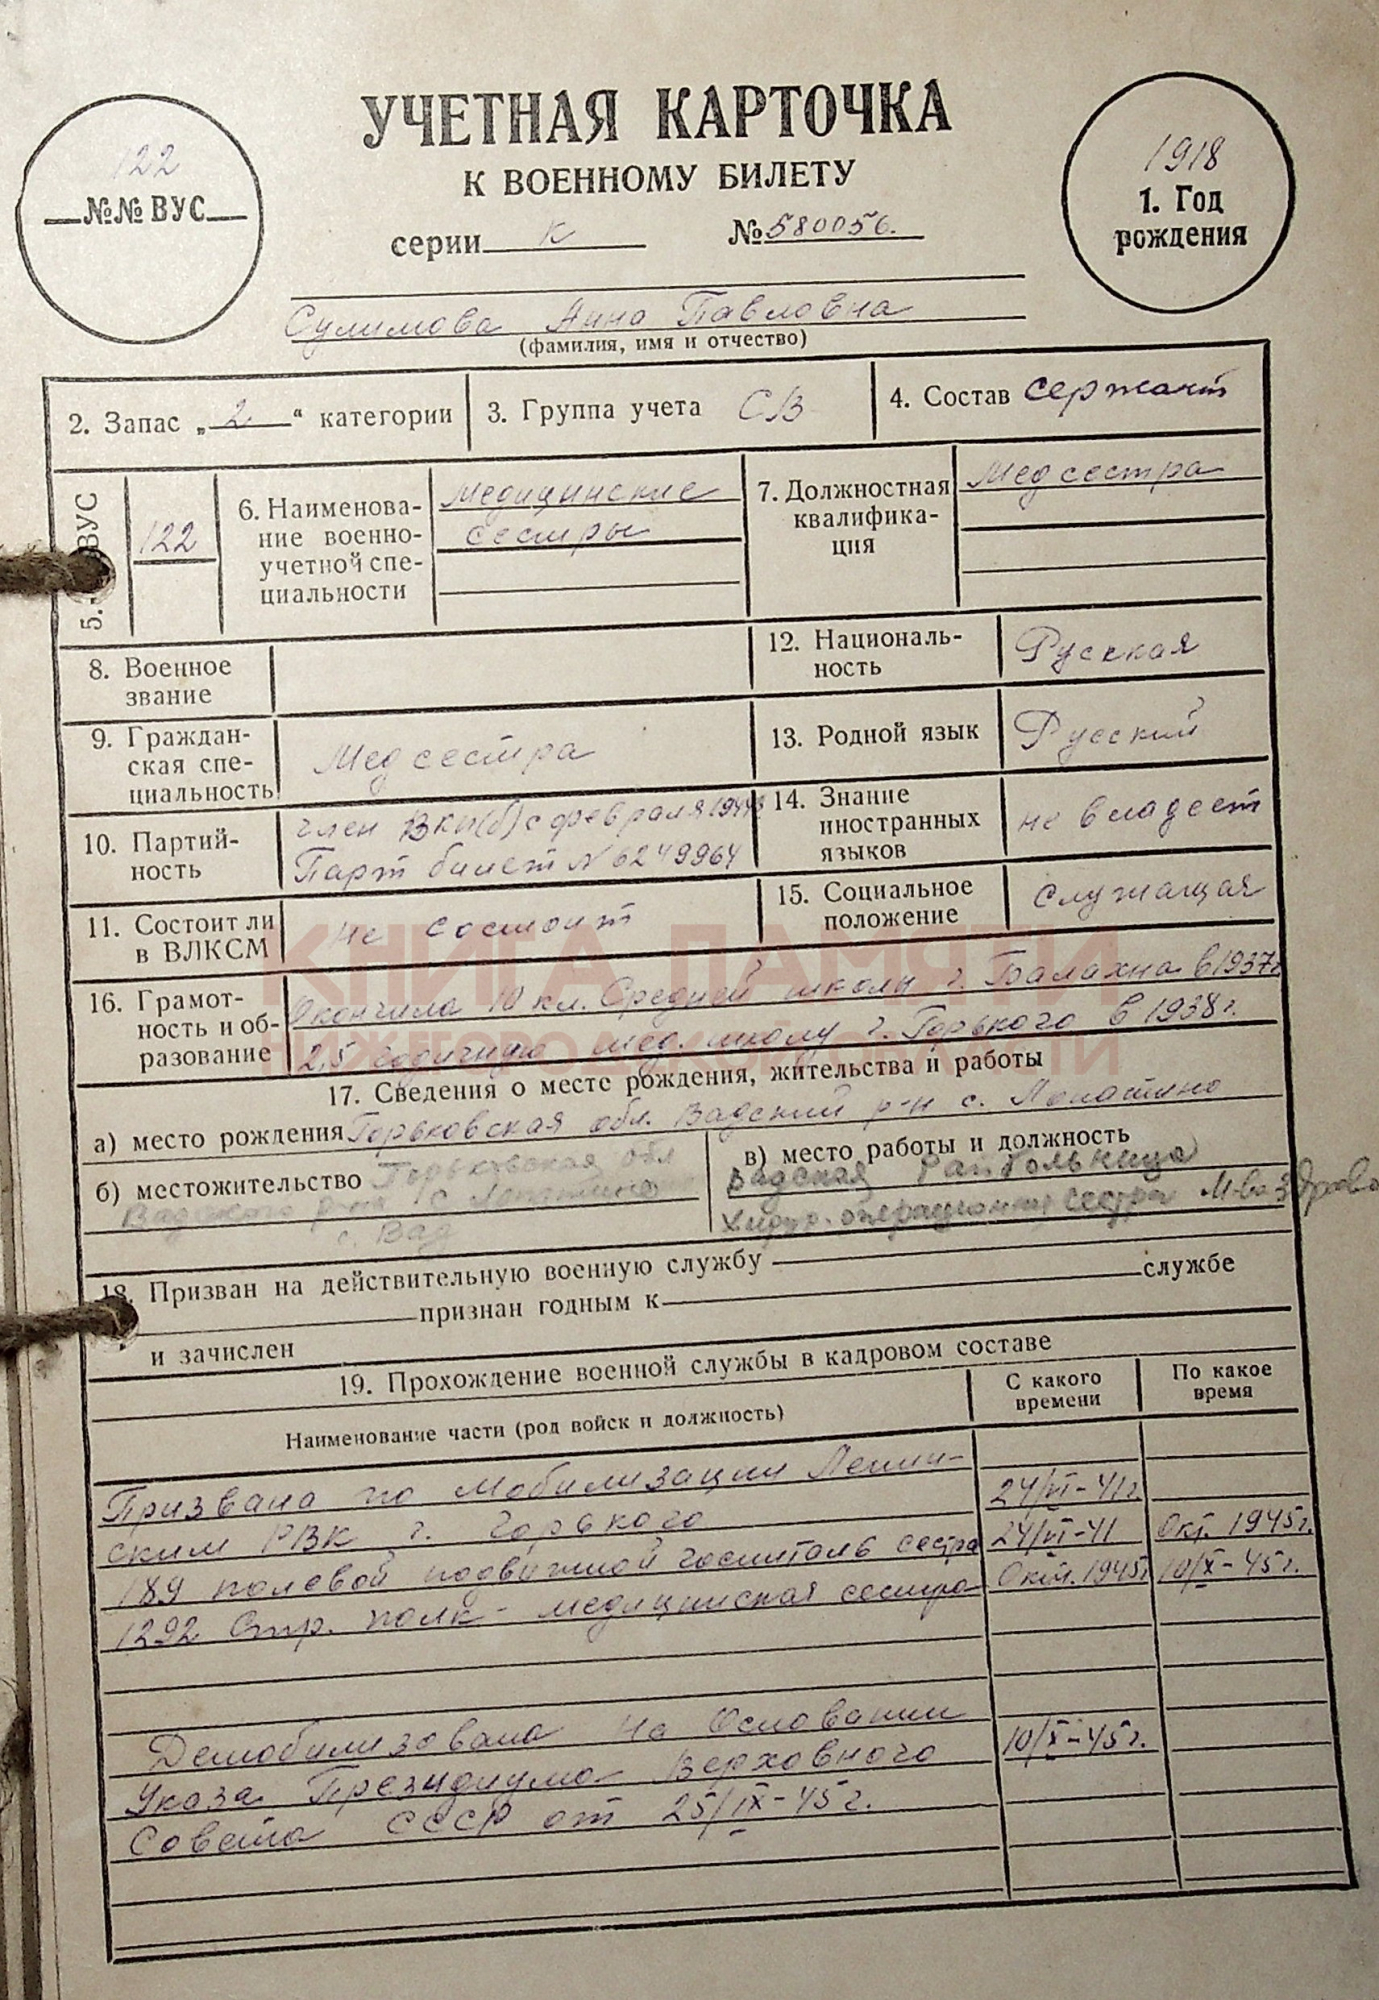 УЧЕТНАЯ КАРТОЧКА
К ВОЕННОМУ БИЛЕТУ
серии К № 580056.
122
№№ ВУС
1918
1. Год
рождения
Сулимова Анна Павловна
(фамилия, имя и отчество)
2. Запас „2“ категории
3. Группа учета СВ
4. Состав сержант
5. ВУС
122
6. Наименова-
ние военно-
учетной спе-
циальности
Медицинские
сестры
7. Должностная
квалифика-
ция
Медсестра
8. Военное
звание
12. Националь-
ность
Русская
9. Граждан-
ская спе-
циальность
Медсестра
13. Родной язык
Русский
10. Партий-
ность
член ВКП(б) с февраля
Парт билет № 6249964
14. Знание
иностранных
языков
не владеет
11. Состоит ли
в ВЛКСМ
не состоит
15. Социальное
положение
Служащая
КНИГА ПАМЯТИ
НИЖЕГОРОДСКОЙ ОБЛАСТИ
16. Грамот-
ность и об-
разование
Окончила 10 кл. Средней школы г. Балахна в 1937г
2,5 годичную мед. школу г. Горького в 1938г.
17. Сведения о месте рождения, жительства и работы
а) место рождения Горьковская обл. Вадский р-н с. Лопатино
б) местожительство Горьковская обл
Вадского р-на с Лопатино
с. Вад
в) место работы и должность
Вадская Райбольница
Хирур. операционная сестра М-ва Здрава
18. Призван на действительную военную службу
признан годным к службе
и зачислен
19. Прохождение военной службы в кадровом составе
Наименование части (род войск и должность)
С какого
времени
По какое
время
Призвана по Мобилизации Ленин-
ским РВК г. Горького 24/VI-41г
189 полевой подвижной госпиталь сестра 24/VI-41 Окт. 1945г.
1292 Стр. полк - медицинская сестра Окт. 1945г 10/X-45г.
Демобилизована на Основании 10/X-45г.
Указа Президиума Верховного
Совета СССР от 25/IX-45г.